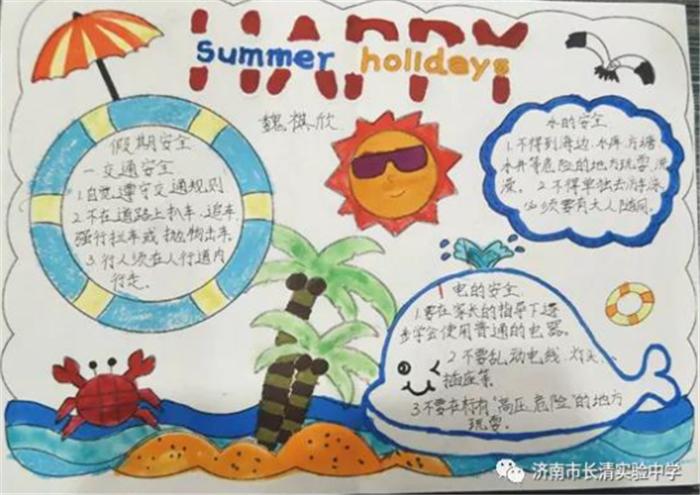 HAPPY
Summer holidays
魏祺欣
假期安全
一交通安全
1.自觉遵守交通规则
2.不在道路上扒车、追车
强行拦车或抛物击车。
3.行人须在人行道内
行走。
水的安全
1.不得到海边、水库、方塘、
水井等危险的地方玩耍、洗
澡。2.不得单独去游泳
必须要有大人陪同。
电的安全
1.要在家长的指导下逐
步学会使用普通的电器。
2.不要乱动电线、灯头、
插座等。
3.不要在标有"高压危险"的地方
玩耍。
济南市长清实验中学